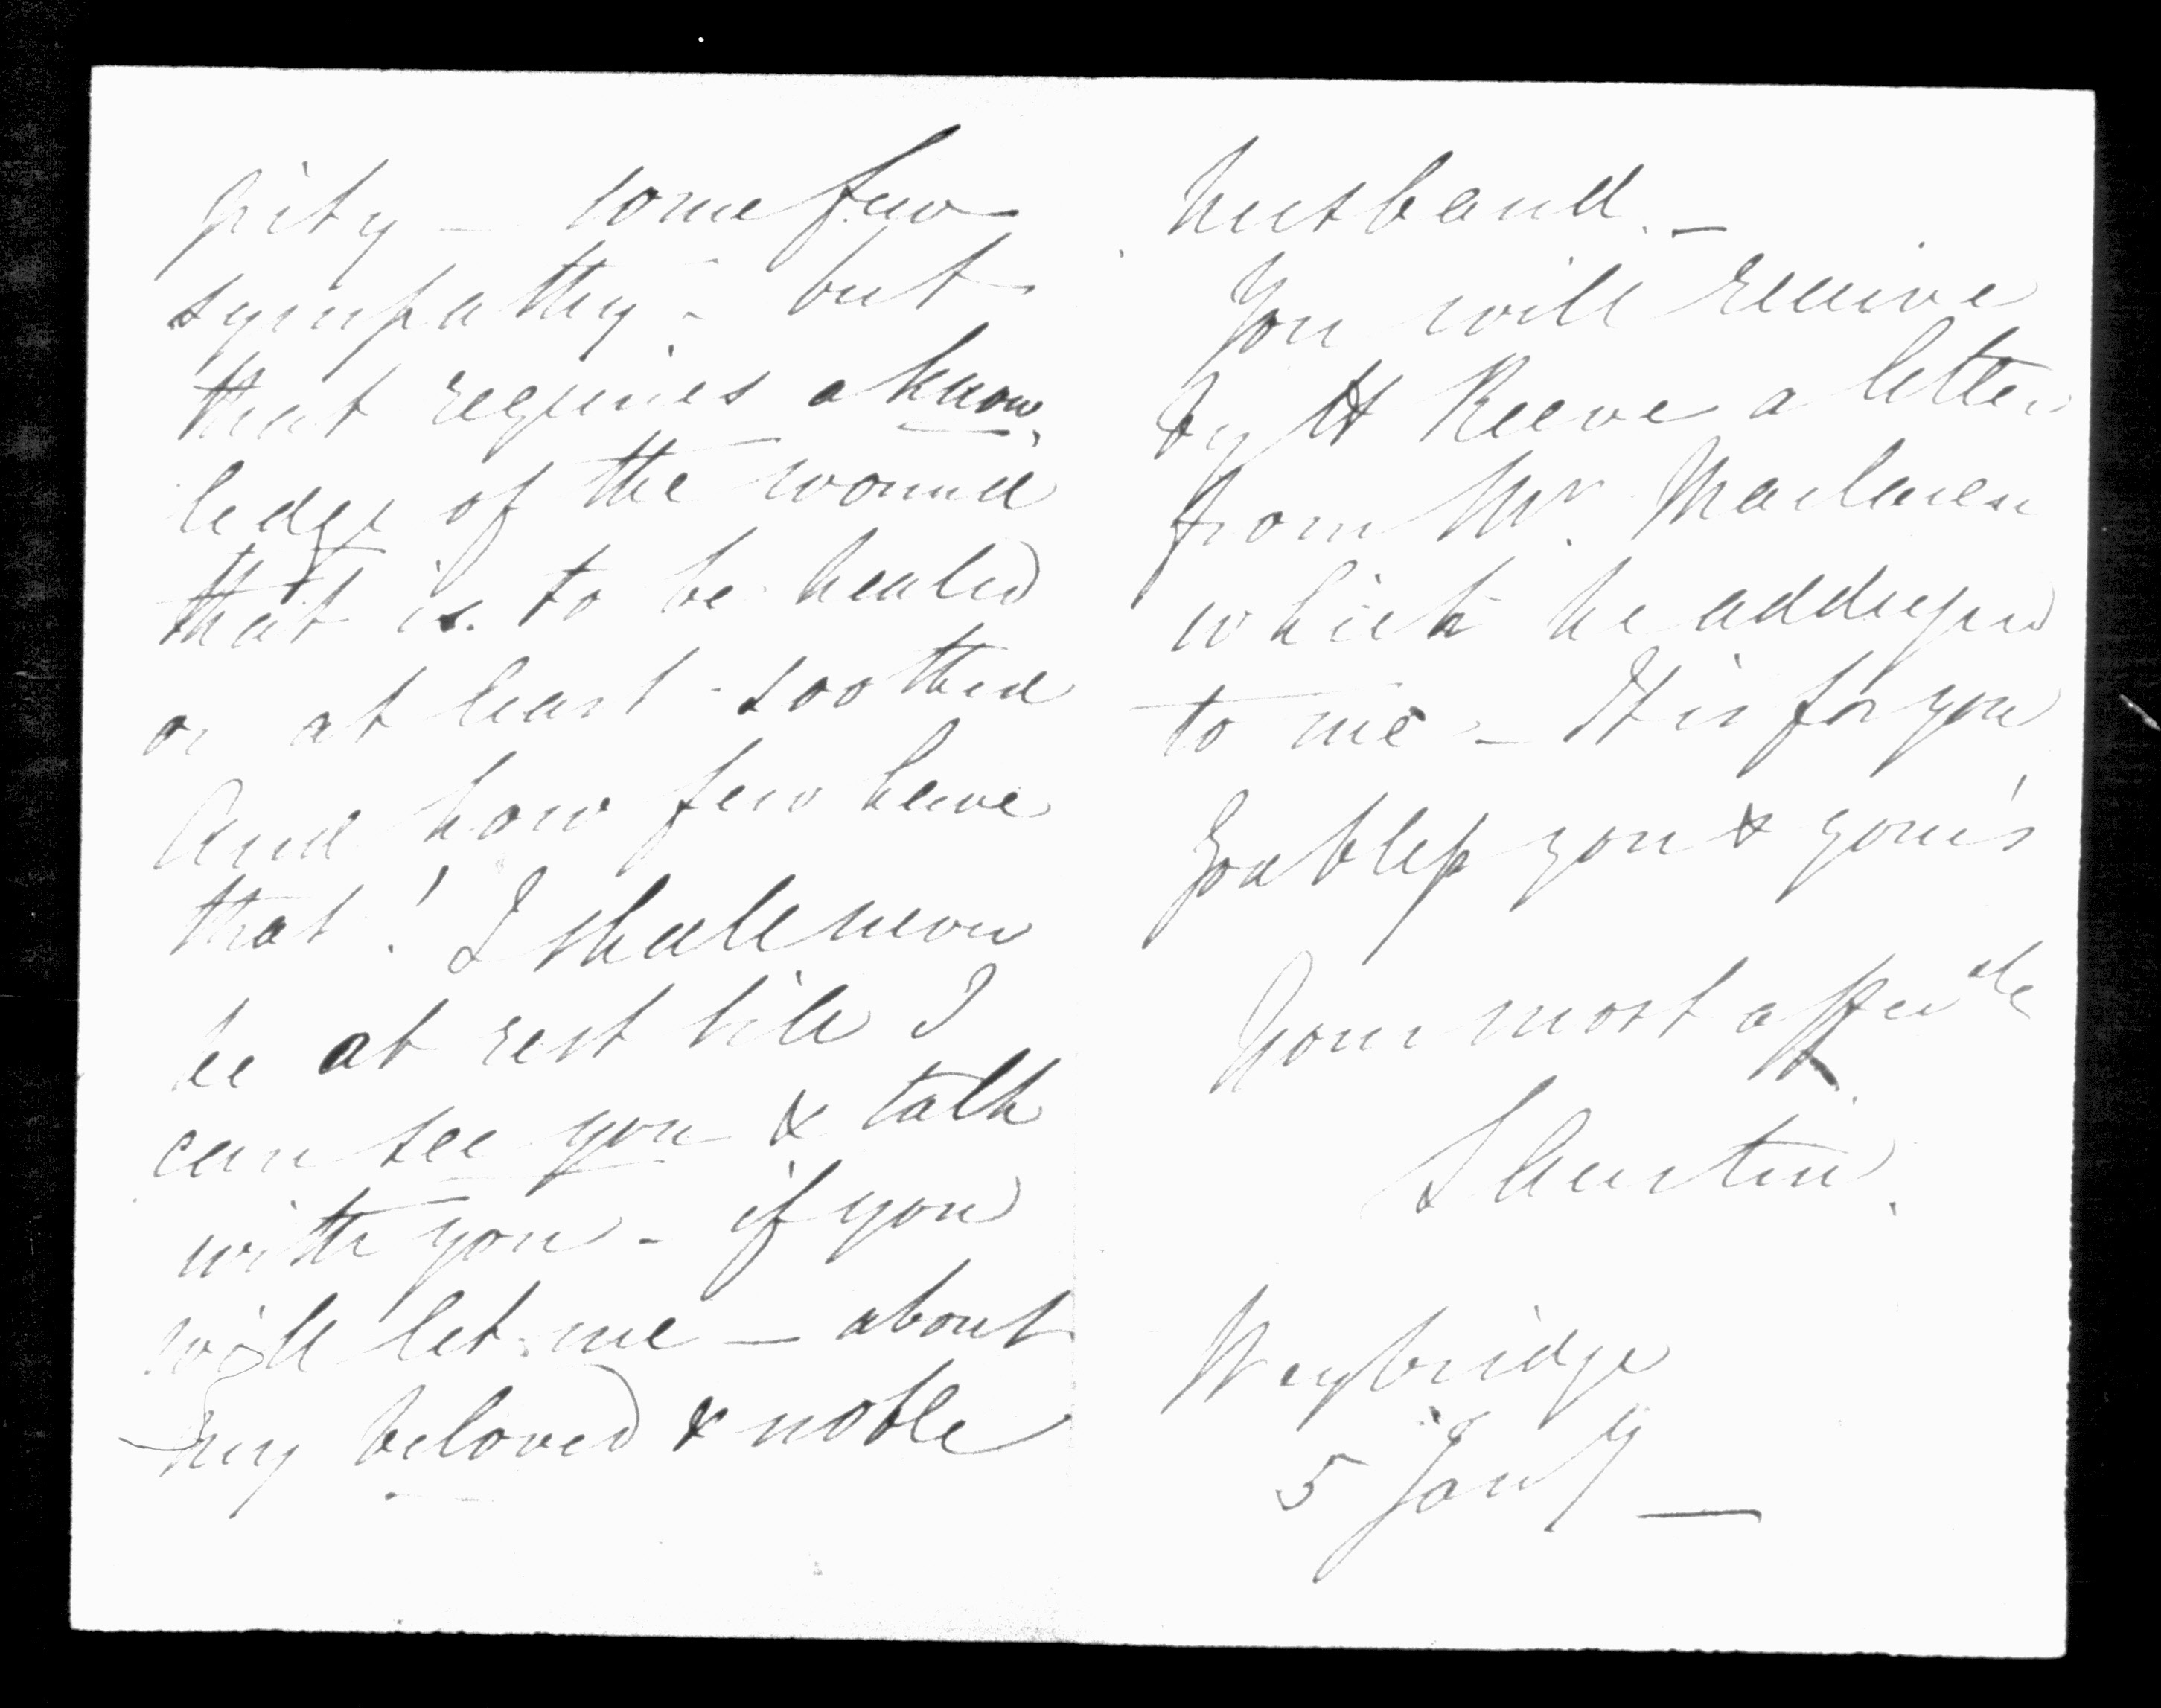 pity – some few
sympathy – but
that requires a know
ledge of the wound
that is to be healed
or at least soothed
And how few have
that! I shall never
be at rest till I
can see you & talk
with you – if you
will let me – about
my beloved & noble
husband. –
You will receive
by H Reeve a letter
from Mr. Maclaren
which he addressed
to me – It is for you
God bless you & your's
Your most affecte
S Austin.
Weybridge
5 Jany —